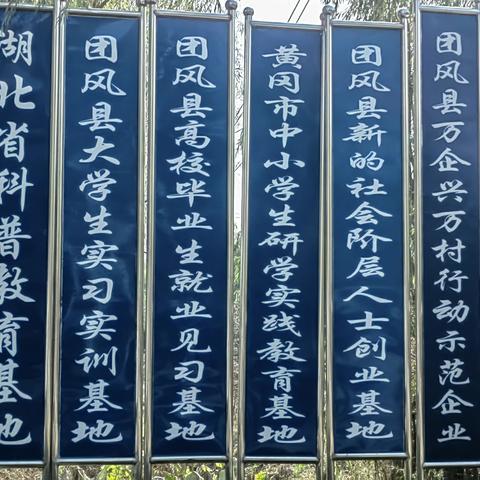 湖北省科普教育基地
团风县大学生实习实训基地
团风县高校毕业生就业见习基地
黄冈市中小学生研学实践教育基地
团风县新的社会阶层人士创业基地
团风县万企兴万村行动示范企业